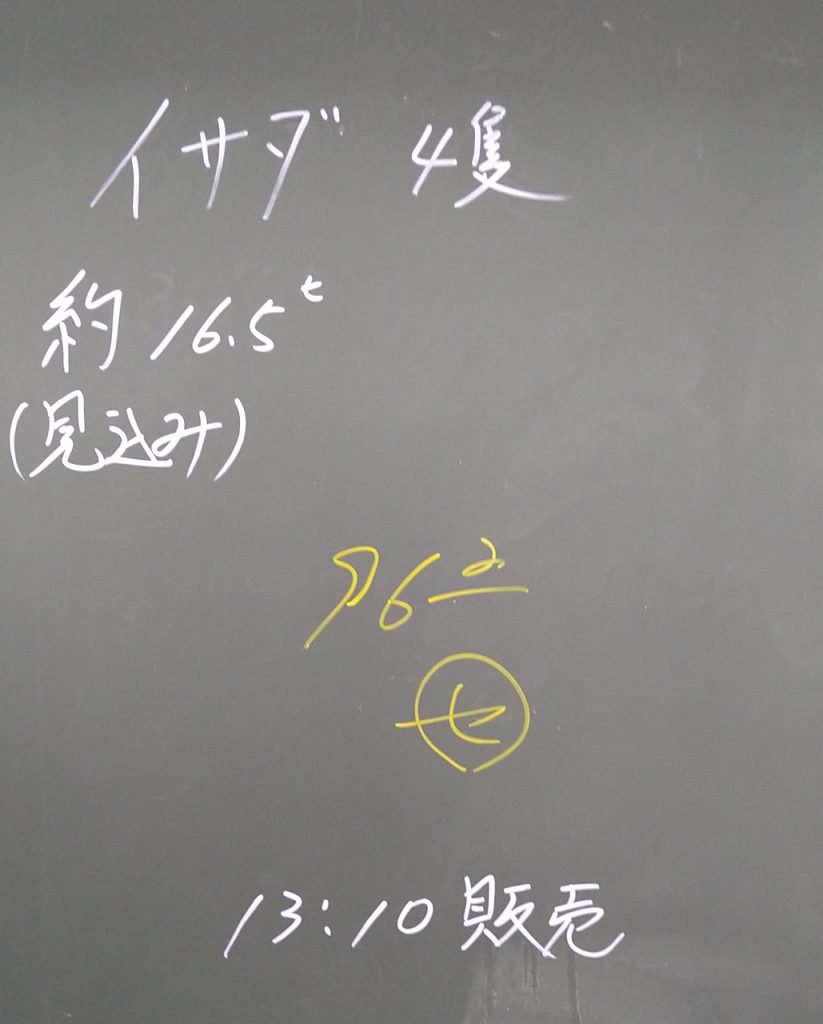 イサダ 4隻
約 16.5t
(見込み)
セ
13:10 販売